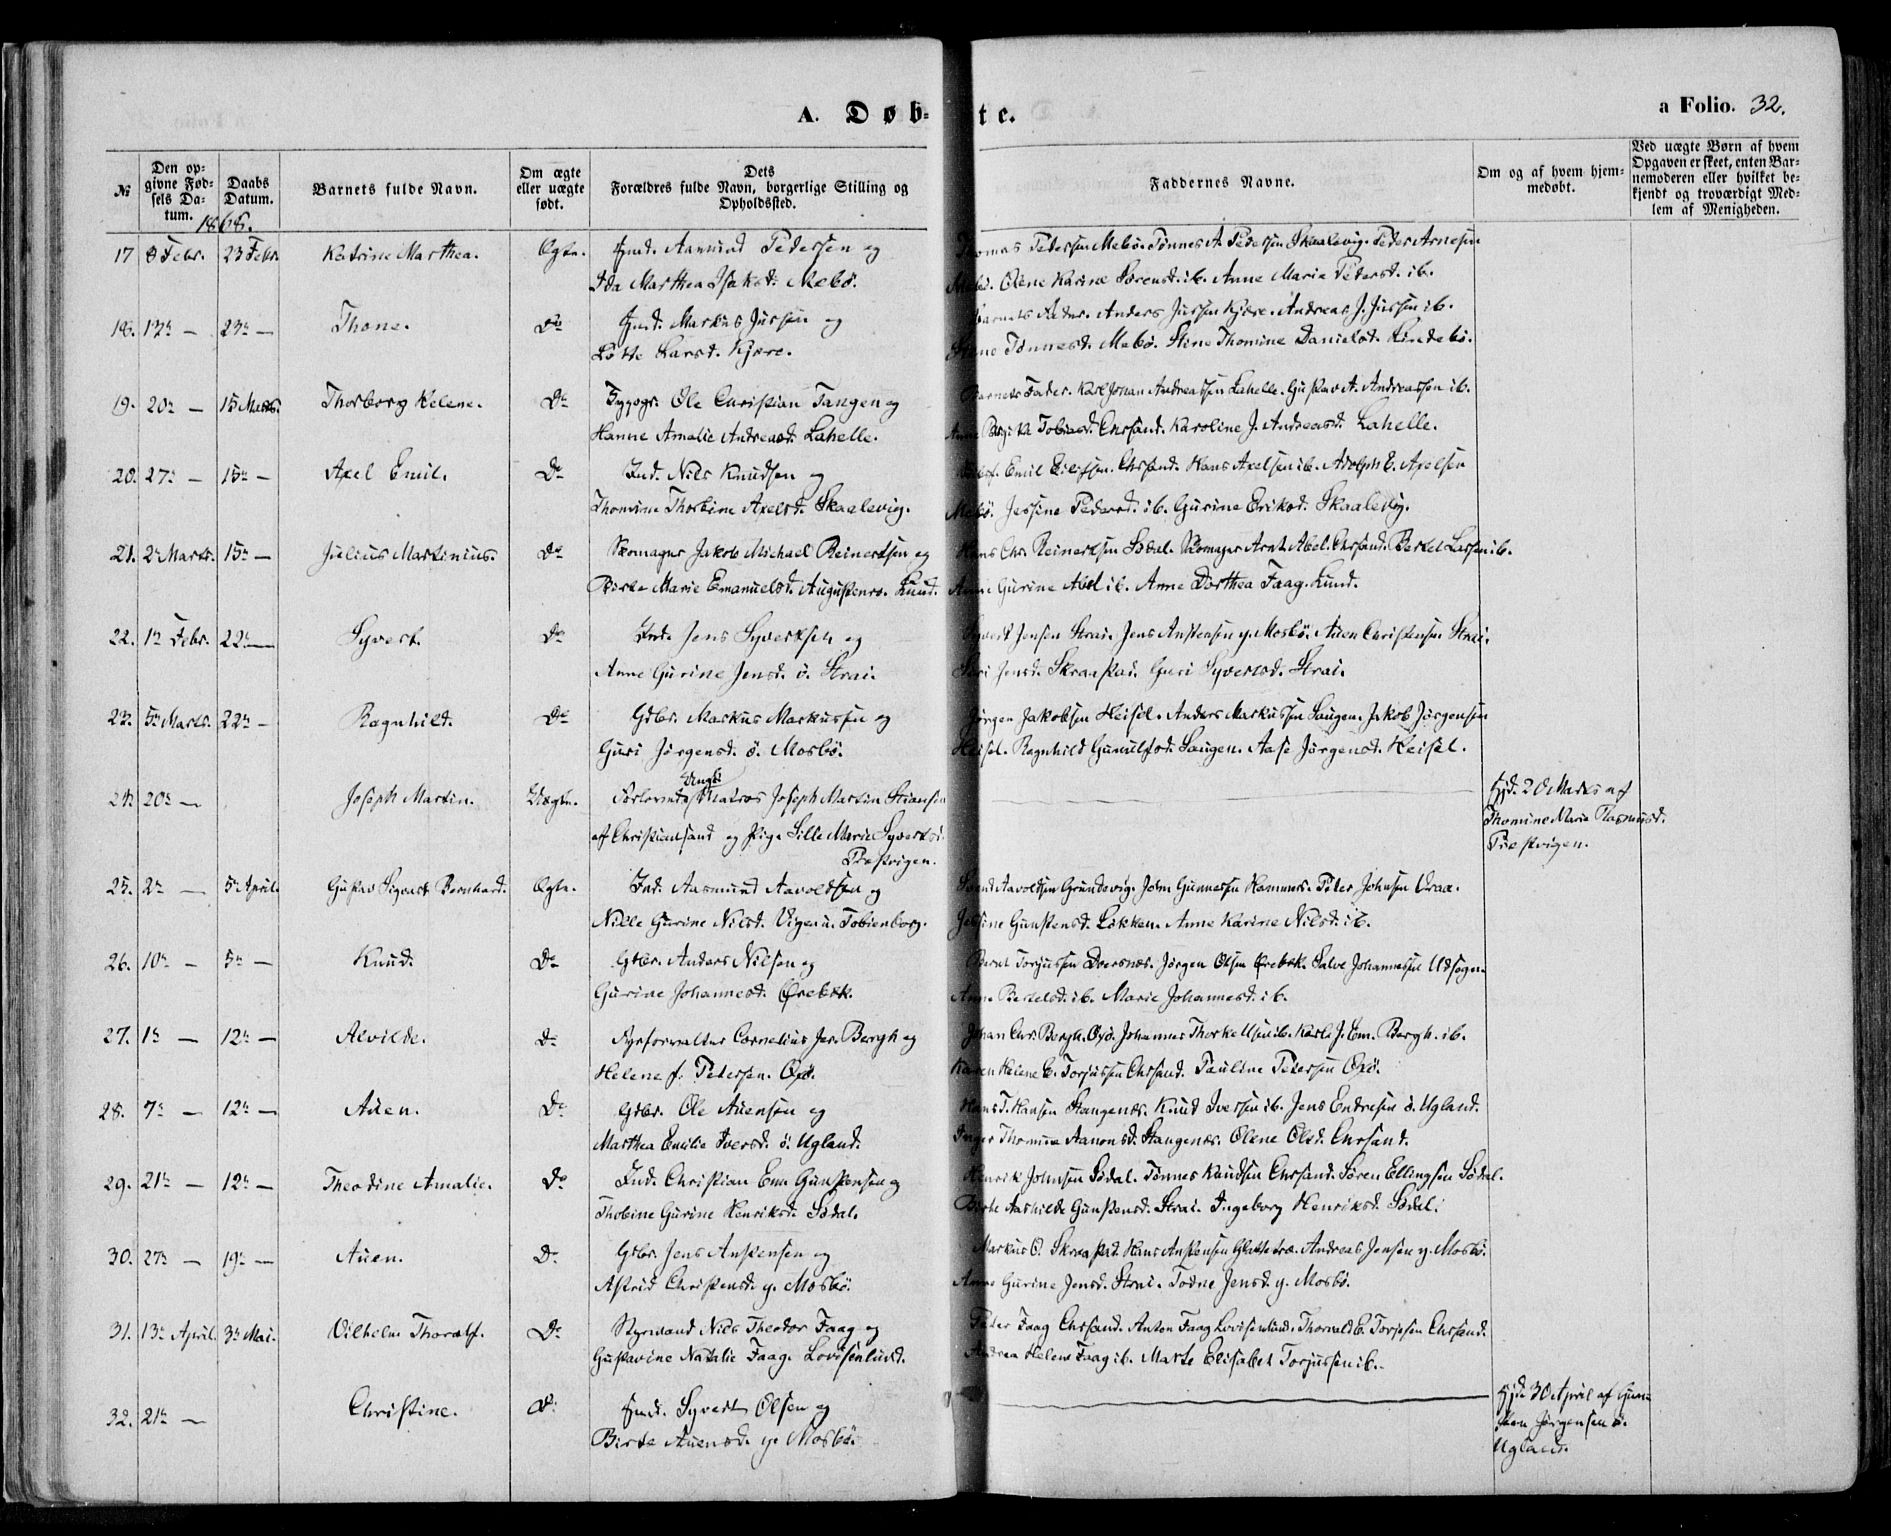 A. Døb-te.
a Folio. 32.
№
Den op-
givne Fød-
sels Da-
tum.
Daabs
Datum.
Barnets fulde Navn.
Om ægte
eller uægte
født.
Dets
Forældres fulde Navn, borgerlige Stilling og
Opholdssted.
Faddernes Navne.
Om og af hvem hjem-
medøbt.
Ved uægte Børn af hvem
Opgaven er skeet, enten Bar-
nemoderen eller hvilket be-
kjendt og troværdigt Med-
lem af Menigheden.
1868.
17 8 Febr. 23 Febr. Katrine Marthea. Ægte. Aanund Pedersen og
Ida Marthea Isaksd. Mebö.
Thomas Pedersen Mebö. Tönnes A. Pedersen Skaalevig. Peder Arnesen
Mebö. Olene Karine Sörensd. ib. Anne Marie Pedersd. ib.
18. 13de — 23de — Thone. Do Markus Jussen og
Lotte Larsd. Kjære.
Barnets Fader. Anders Jussen Kjære. Andreas J. Jussen ib.
Tönnesd. Mebö. Stine Thomine Danielsd. Lindebö.
19. 20de — 15 Marts. Thorborg Helene. Do Ole Christian Tangen og
Hanne Amalie Andreasd. Lahelle.
Barnets Fader. Karl Johan Andreassen Lahelle. Gustav A. Andreassen ib.
Tobiasd. Chrsand. Karoline J. Andreasd. Lahelle.
20. 27de — 15de — Axel Emil. Do Ind. Nils Knudsen og
Thomine Thorbine Axelsd. Skaalevig.
Emil Eilefsen. Chrsand. Hans Axelsen ib. Adolph E. Axelsen
Mebö. Jessine Pedersd. ib. Gurine Eriksd. Skaalevig.
21. 2de Marts. 15de — Julius Martinius. Do Skomager Jakob Michael Reinertsen og
Birte Marie Emanuelsd. Augustenb. Lund.
Hans Chr. Reinertsen Södal. Skomager Arnt Abel. Chrsand. Bertel Larsen ib.
Anne Gurine Abel ib. Anne Dorthea Faag. Lund.
22. 1ste Febr. 22de — Syvert. Do Ind. Jens Syvertsen og
Anne Gurine Jensd. ö. Strai.
Syvert Jensen Strai. Jens Anstensen y. Mosbö. Auen Christensen Strai.
Siri Jensd. Skraastad. Guri Syversd. Strai.
23. 5te Marts. 22de — Ragnhild. Do Gdbr. Markus Markussen og
Guri Jörgensd. ö. Mosbö.
Jörgen Jakobsen Heisel. Anders Markussen Haugen. Jakob Jörgensen
Heisel. Ragnhild Gunulfsd. Haugen. Aase Jörgensd. Heisel.
24 20de — Joseph Martin. Uægte. Forlovede Ungk. Matros Joseph Martin Hansen
af Christiansand og Pige Sille Marie Syvertsd.
Præstvigen.
Hjd. 20 Marts af
Thomine Marie Rasmusd.
Præstvigen.
25. 2de — 5te April. Gustav Sigvart Bernhard. Ægte. Ind. Aasmund Aavoldsen og
Nille Gurine Nilsd. Vigen u. Tobienborg.
Svend Aavoldsen Grundevig. John Gunnersen Hammer. Peter Johnsen Vraa.
Jessine Gunstensd. Løkken. Anne Karine Nilsd. ib.
26. 10de — 5te — Knud. Do Gdbr. Anders Nilsen og
Gurine Johannesd. Ørebæk.
Bernt Torjussen Dversnes. Jörgen Olsen Ørebæk. Salve Johannessen Udsogn.
Anne Bertelsd. ib. Marie Johannesd. ib.
27. 1ste — 12te — Alvilde. Do Fyrforvalter Cornelius Jes. Bergh og
Helene f. Petersen. Oxö.
Johan Chr. Bergh. Oxö. Johannes Thorkelsen ib. Karli J. Em. Bergh. ib.
Karen Helene E. Torjussen Chrsand. Pauline Petersen Oxö.
28. 7de — 12te — Auen. Do Gdbr. Ole Auensen og
Marthea Emilie Iversd. ö. Ugland.
Hans T. Hansen Stangenes. Knud Iversen ib. Jens Endresen ö. Ugland.
Inger Thomine Aanonsd. Stangenes. Olene Olsd. Chrsand.
29. 21de — 12te — Theodine Amalie. Do Ind. Christian Em. Gunstensen og
Thobine Gurine Henriksd. Södal.
Henrik Johnsen Södal. Tönnes Knudsen Chrsand. Sören Ellingsen Södal.
Birte Aashilde Gunstensd. Strai. Ingeborg Henriksd. Södal.
30. 27de — 19de — Auen. Do Gdbr. Jens Anstensen og
Astrid Christensd. y. Mosbö.
Markus O. Skraastad. Hans Anstensen Glattetræ. Andreas Jensen y. Mosbö.
Anne Gurine Jensd. Strai. Tone Jensd. y. Mosbö.
31. 13de April. 3de Mai. Vilhelm Thoralf. Do Styrmand Nils Theodor Faag og
Gustavine Natalie Faag. Lovisenlund.
Peder Faag Chrsand. Anton Faag Lovisenlund. Thorvald E. Torjusen Chrsand.
Andrea Helene Faag ib. Marte Elisabet Torjussen ib.
32. 21de — Christine. Do Syvert Olsen og
Birte Auensd. y. Mosbö.
Hjd. 30 April af Gun-
sten Jörgensen ö.
Ugland.